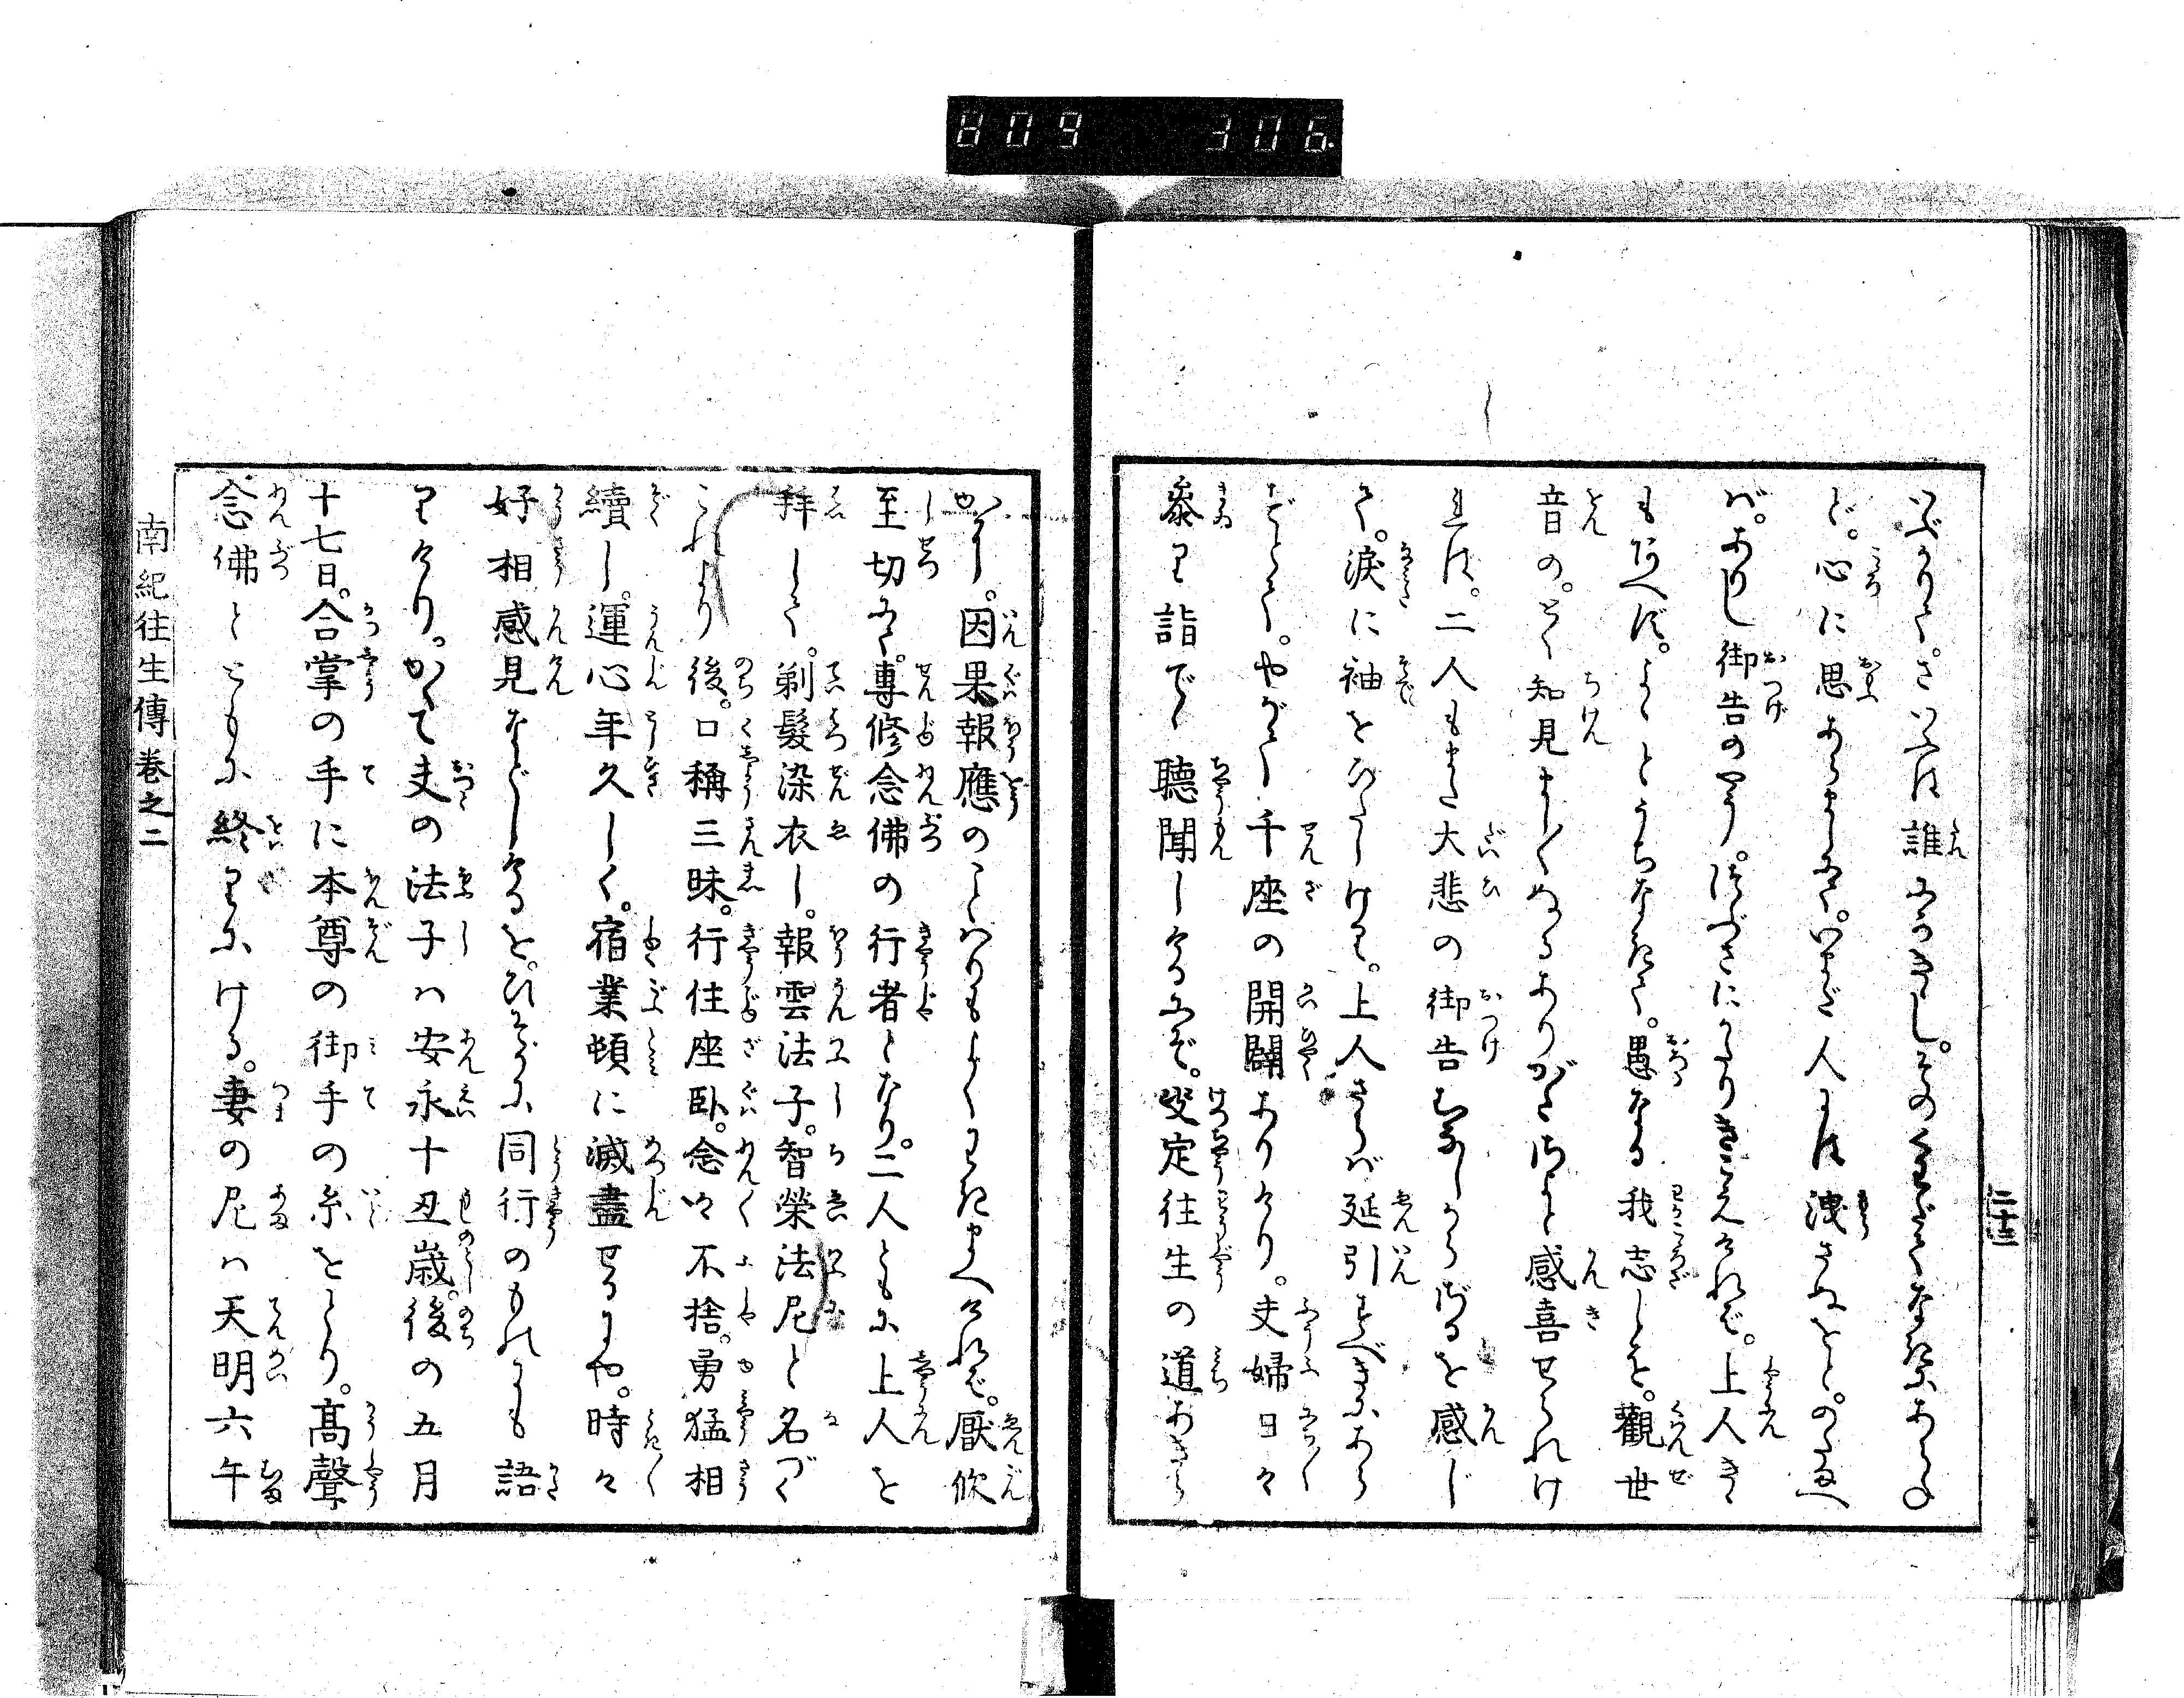 809 306
いぶかりて。さいへは誰にかきゝし。そのくはだてなきにあらね
ど。心に思あらましにて。いまだ人には洩さぬをと。のたまへ
ば。ありし御告のやう。つぶさにかたりきこえけれど。上人きゝ
もあへず。よゝとうちなきて。愚なる我志しを。觀世
音の。とく知見まし〳〵ぬるありがたさよと感喜せられけ
れは。二人もまた大悲の御告むなしからざるを感じ
て。涙に袖をひたしけり。上人さらば延引すべきにあら
ずとて。やがて千座の開闢ありけり。夫婦日々
参り詣でゝ聴聞しけるにぞ。决定往生の道あきら
かに。因果報應のことはりもよくわきまへければ。厭欣
至切にて。專修念佛の行者となり。二人ともに上人を
拜して。剃髮染衣し。報雲法子。智榮法尼と名づく
これより後。口稱三昧。行住座臥。念々不捨。勇猛相
續し。運心年久しく。宿業頓に滅盡せるにや。時々
好相感見などしけるを。ひそかに同行のものにも語
りけり。かくて夫の法子ハ安永十丑歳。後の五月
十七日。合掌の手に本尊の御手の糸をとり。髙聲
念佛とともに終りにける。妻の尼ハ天明六午
南紀往生傳巻之二